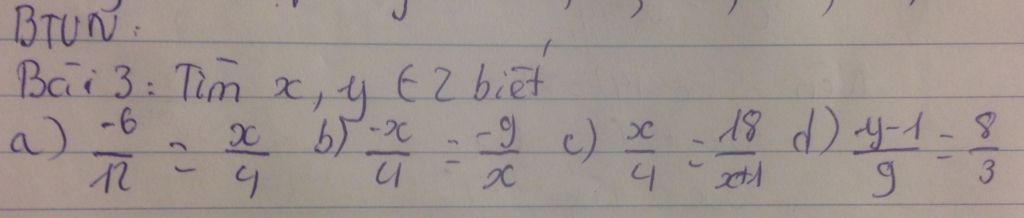 BTVN:
Bài 3: Tìm x, y ∈ Z biết
a) -6/12 = x/4 b) -x/4 = -9/x c) x/4 = 18/x+1 d) y-1/9 = 8/3